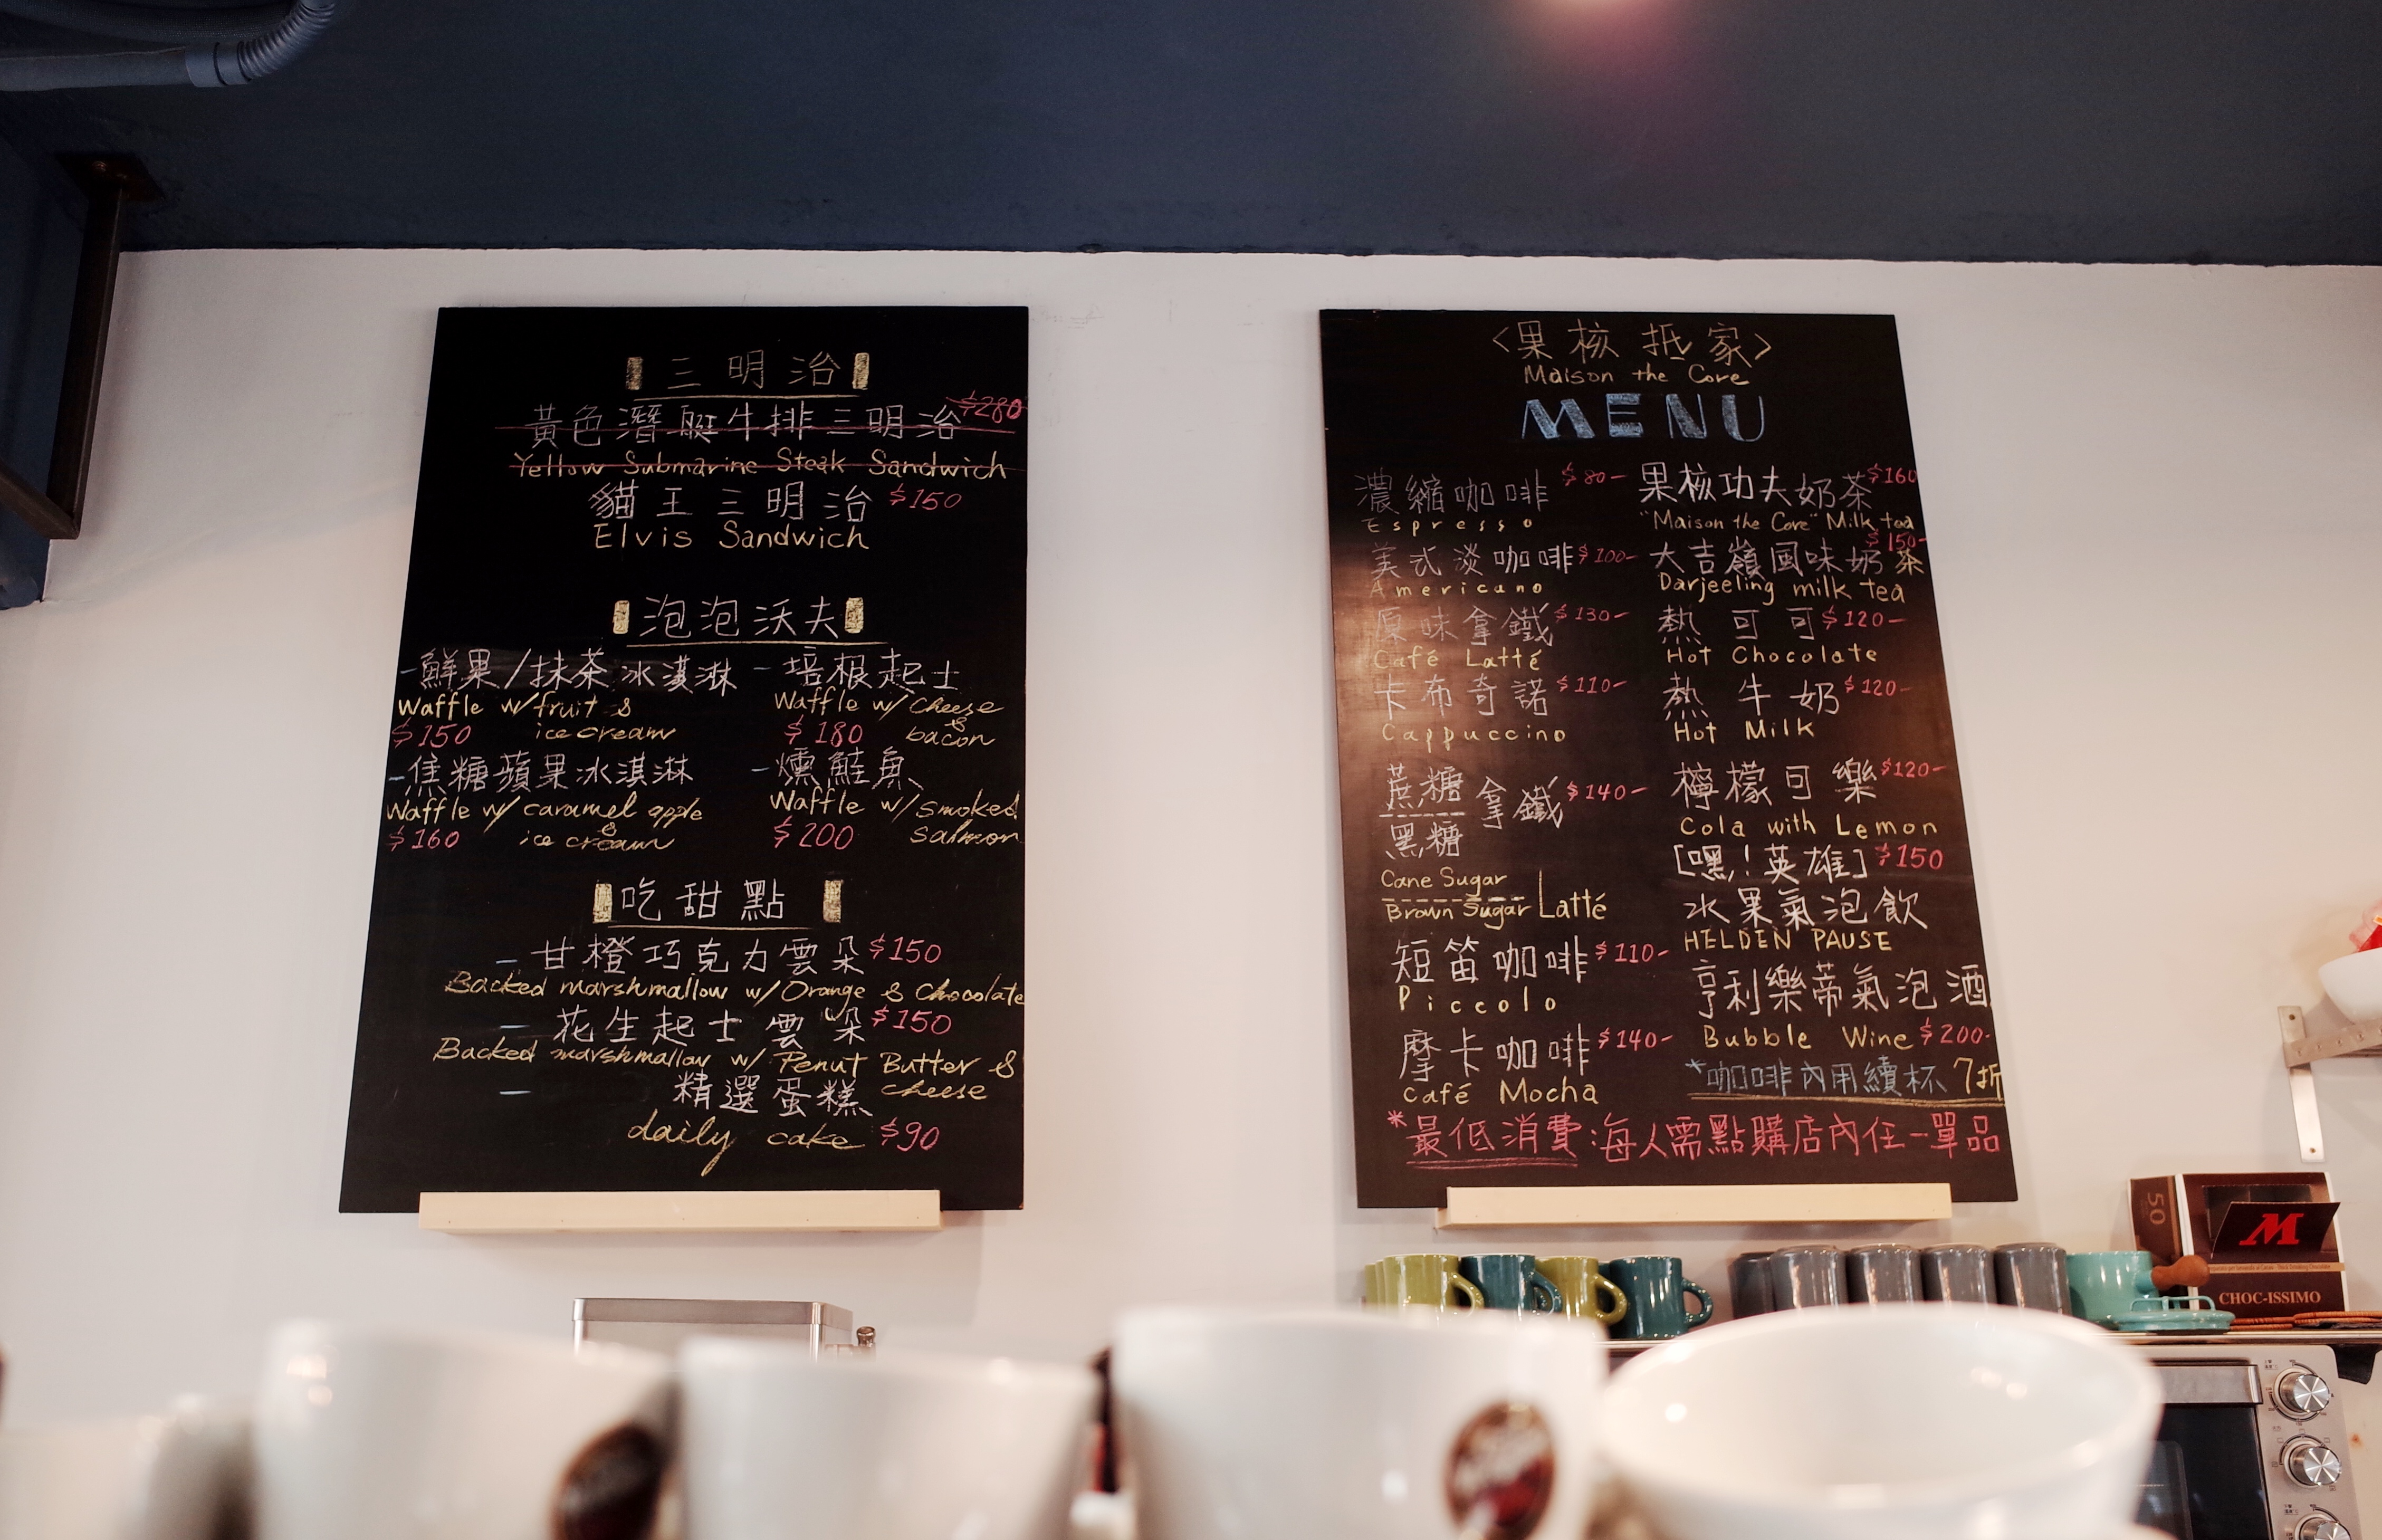 三明治
黃色潛艇牛排三明治 $280
Yellow Submarine Steak Sandwich
貓王三明治 $150
Elvis Sandwich
泡泡沃夫
-鮮果/抹茶冰淇淋
Waffle w/ fruit &
$150 ice cream
-培根起士
Waffle w/ cheese
&
$180 bacon
-焦糖蘋果冰淇淋
Waffle w/ caramel apple
&
$160 ice cream
-燻鮭魚
Waffle w/ smoked
$200 salmon
吃甜點
- 甘橙巧克力雲朵 $150
Backed marshmallow w/ Orange & Chocolate
- 花生起士雲朵 $150
Backed marshmallow w/ Penut Butter &
cheese
- 精選蛋糕
daily cake $90
<果核抵家>
Maison the Core
MENU
濃縮咖啡 $80-
Espresso
美式淡咖啡 $100-
Americano
原味拿鐵 $130-
Café Latté
卡布奇諾 $110-
Cappuccino
蔗糖
黑糖
拿鐵 $140-
Cane Sugar
Brown Sugar Latté
短笛咖啡 $110-
Piccolo
摩卡咖啡 $140-
Café Mocha
果核功夫奶茶 $160
"Maison the Core" Milk tea
大吉嶺風味奶茶 $150-
Darjeeling milk tea
熱可可 $120-
Hot Chocolate
熱牛奶 $120-
Hot Milk
檸檬可樂 $120-
Cola with Lemon
[嘿!英雄] $150
水果氣泡飲
HELDEN PAUSE
亨利樂蒂氣泡酒
Bubble Wine $200-
*咖啡內用續杯7折
*最低消費:每人需點購店內任一單品
50
M
CHOC-ISSIMO